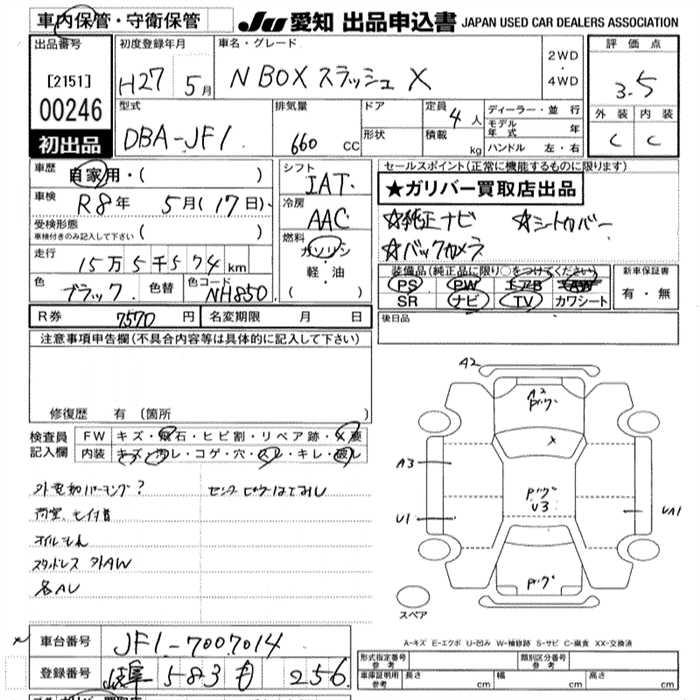 車内保管・守衛保管
JU 愛知 出品申込書 JAPAN USED CAR DEALERS ASSOCIATION
出品番号 [2151] 00246 初出品
初度登録年月 H27 5月
車名・グレード N BOX スラッシュ X
2WD・4WD
評価点 3.5
外装 C 内装 C
型式 DBA-JF1
排気量 660 CC
ドア 形状
定員 4人 積載 kg
ディーラー・並行
モデル年式 年
ハンドル 左・右
車歴 自家用・( )
車検 R8年 5月(17日)
受検形態 車検付きのみ記入して下さい ( )
走行 15万5千574km
色 ブラック 色替 色コード NH850
シフト IAT
冷房 AAC
燃料 ガソリン 軽・油 ( )
セールスポイント(正常に機能するものに限ります)
★ガリバー買取店出品
☆純正ナビ ☆シートカバー
☆バックカメラ
装備品(純正品に限り○をつけてください)
PS PW エアB AW
SR ナビ TV カワシート
新車保証書 有・無
R券 7570円 名変期限 月 日
後日品
注意事項申告欄(不具合内容等は具体的に記入して下さい)
修復歴 有 (箇所
検査員記入欄
FW キズ・飛石・ヒビ割・リペア跡・X要
内装 キズ・汚レ・コゲ・穴・スレ・キレ・破レ
オイルもれ
スタッドレス 外AW
各スレ
A2
A2
X
A3
U1
U3
UA1
スペア
A-キズ E-エクボ U-凹み W-補修跡 S-サビ C-腐食 XX-交換済
車台番号 JF1-7007014
登録番号 岐阜 583 も 256
形式指定番号 参考
類別区分番号 参考
車庫証明用 参考 長さ cm 幅 cm 高さ cm